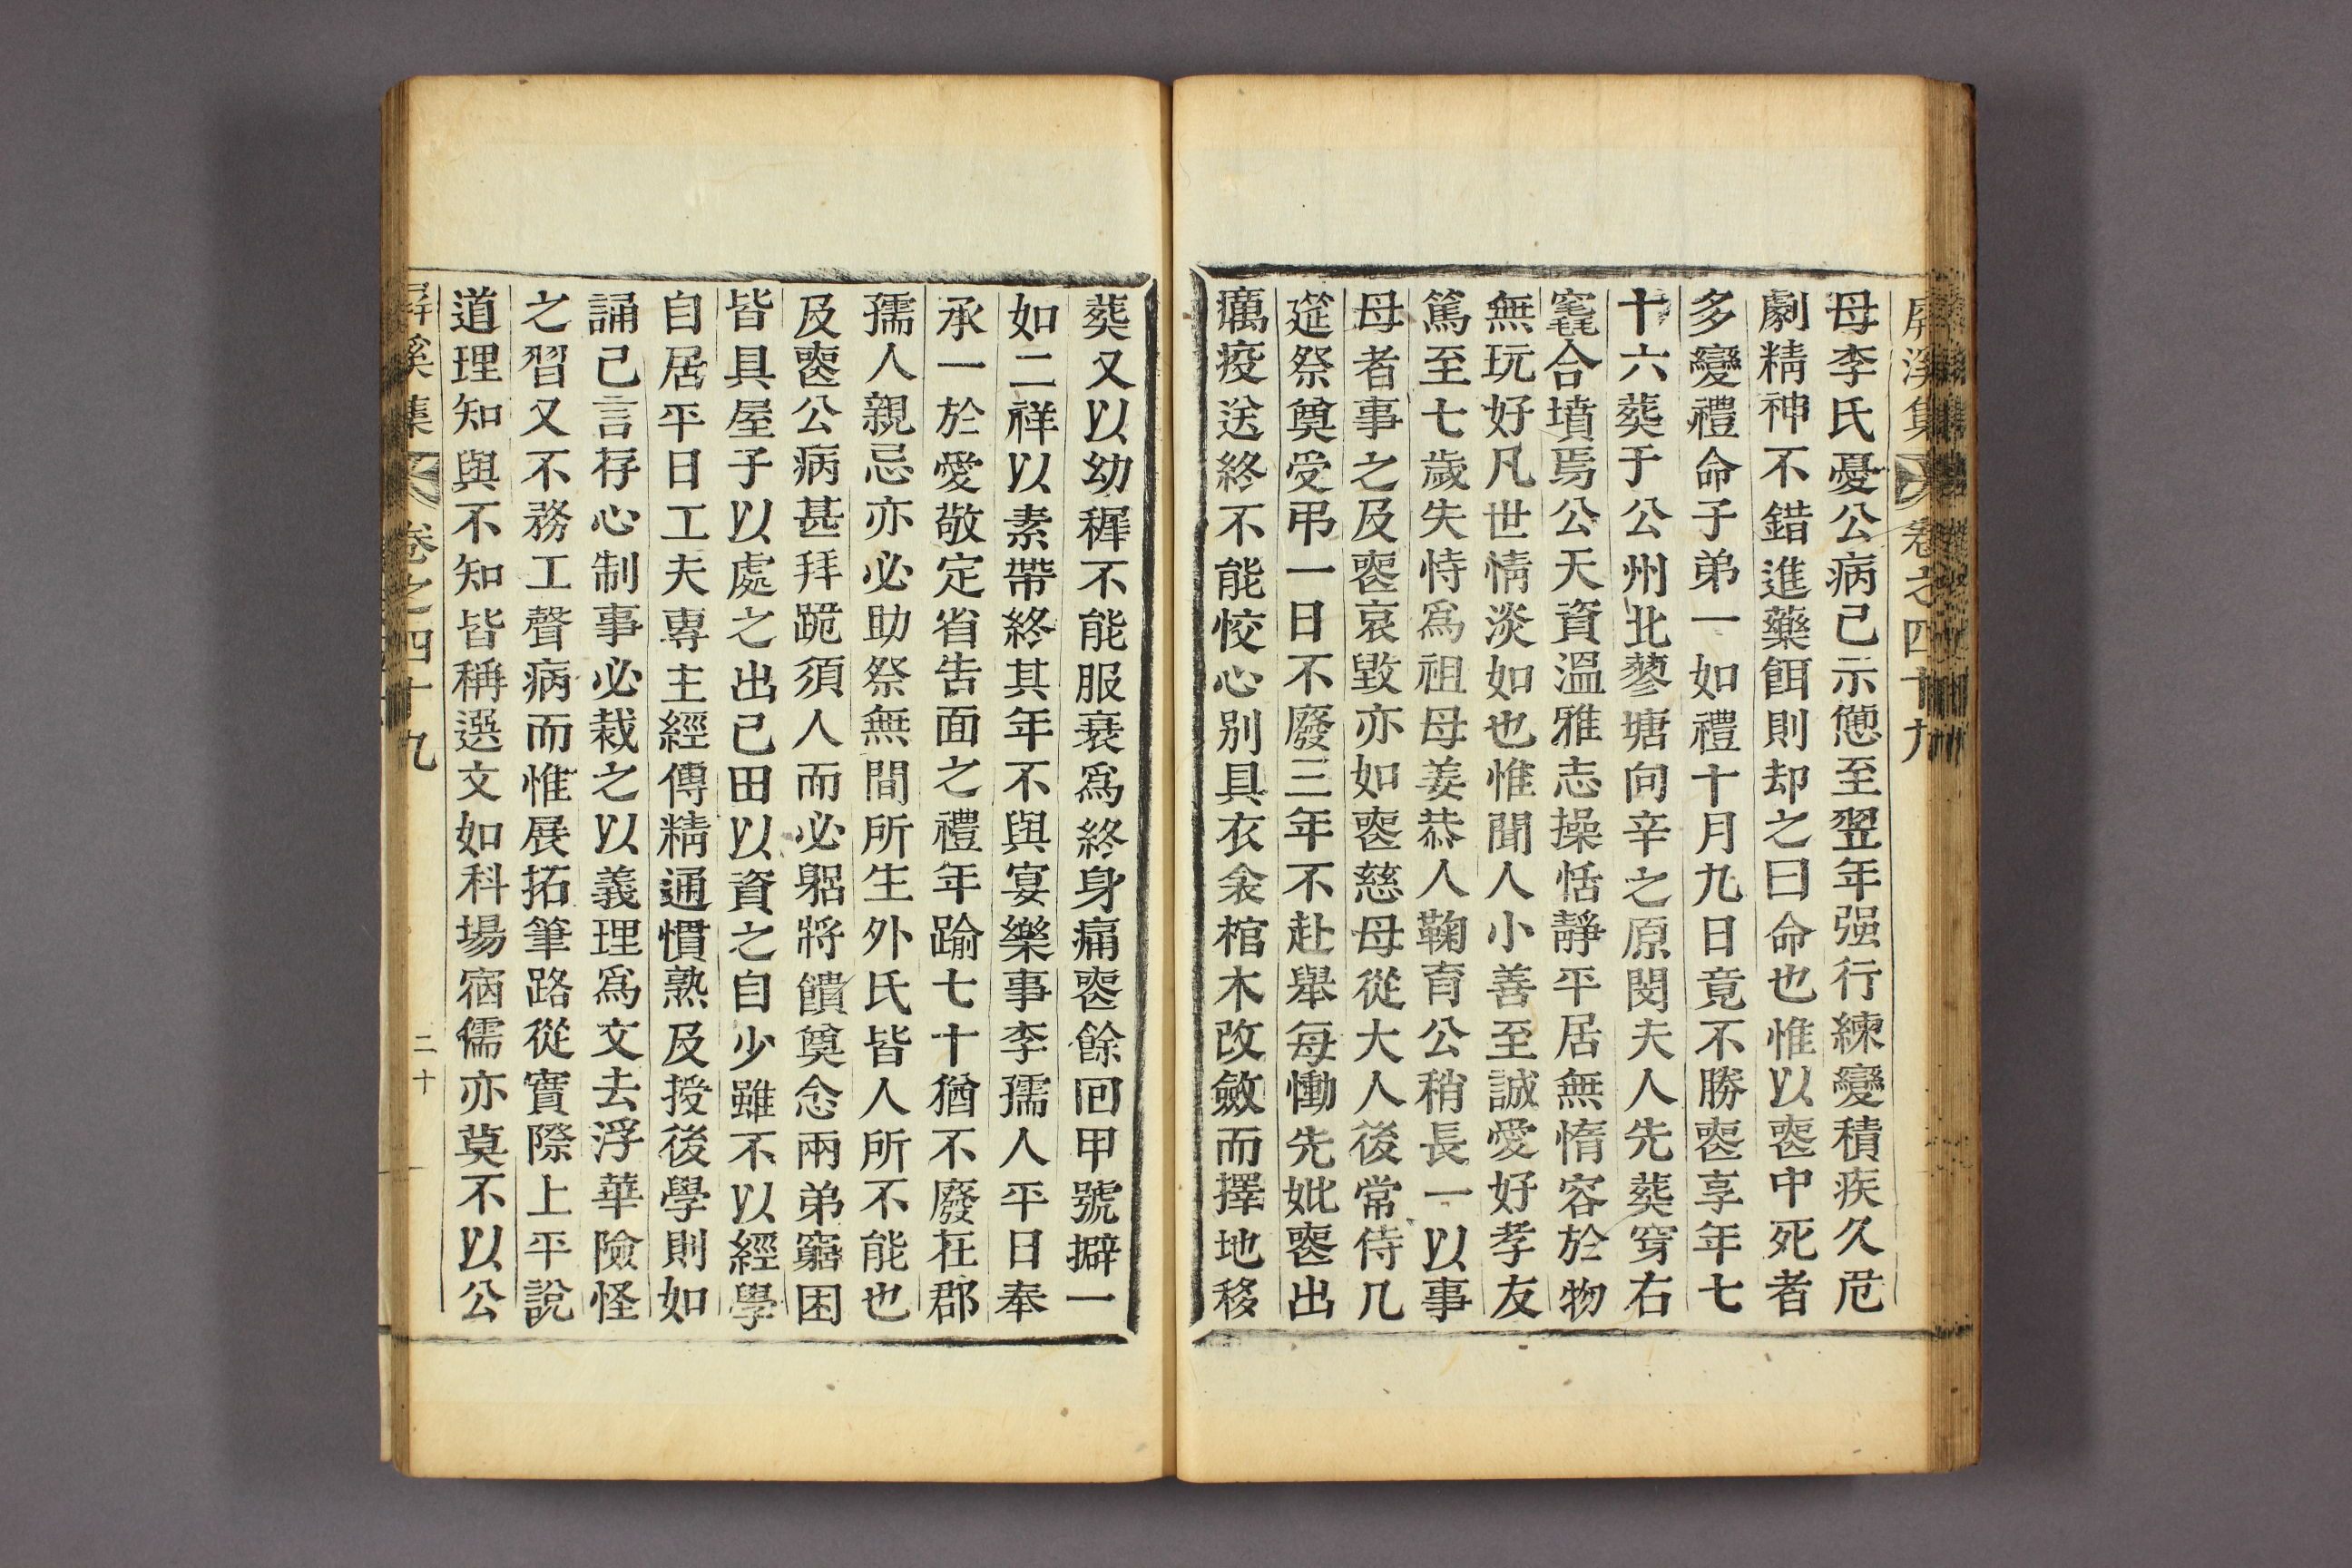 屛溪集 卷之四十九
母李氏憂公病己示憊至翌年强行練變積疾久危
劇精神不錯進藥餌則却之曰命也惟以喪中死者
多變禮命子弟一如禮十月九日竟不勝喪享年七
十六葬于公州北蓼塘向辛之原閔夫人先葬穿右
窆合墳焉公天資溫雅志操恬靜平居無惰容於物
無玩好凡世情淡如也惟聞人小善至誠愛好孝友
篤至七歲失恃爲祖母姜恭人鞠育公稍長一以事
母者事之及喪哀毀亦如喪慈母從大人後常侍几
筵祭奠受弔一日不廢三年不赴擧每慟先妣喪出
癘疫送終不能恔心別具衣衾棺木改斂而擇地移
葬又以幼穉不能服衰爲終身痛喪餘回甲號擗一
如二祥以素帶終其年不與宴樂事李孺人平日奉
承一於愛敬定省告面之禮年踰七十猶不廢在郡
孺人親忌亦必助祭無間所生外氏皆人所不能也
及喪公病甚拜跪須人而必躬將饋奠念兩弟窮困
皆具屋子以處之出己田以資之自少雖不以經學
自居平日工夫專主經傳精通慣熟及授後學則如
誦己言存心制事必裁之以義理爲文去浮華險怪
之習又不務工聲病而惟展拓筆路從實際上平說
道理知與不知皆稱選文如科場宿儒亦莫不以公
屛溪集 卷之四十九 二十